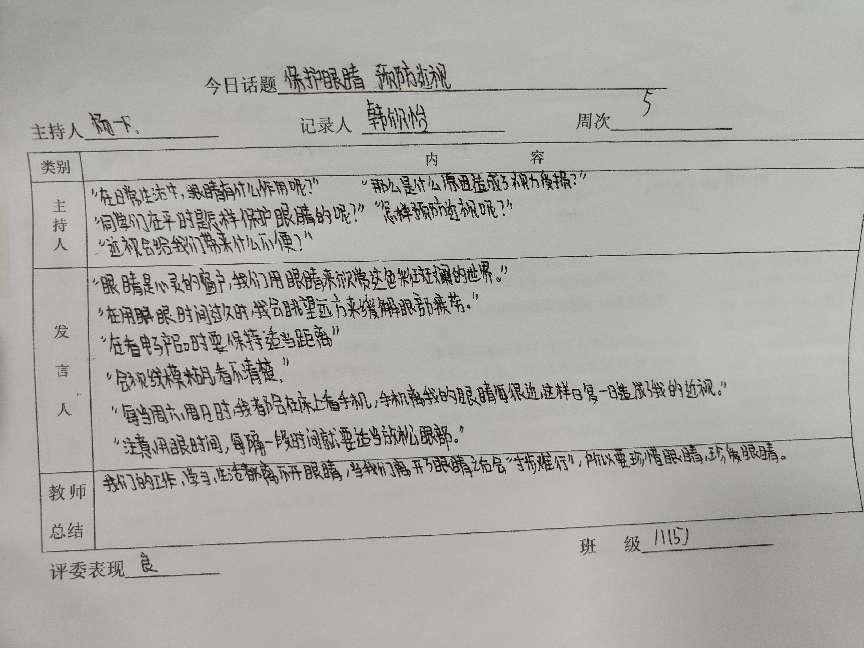 今日话题 保护眼睛 预防近视
主持人 杨卡 记录人 韩欣怡 周次 5
类别 内容
主持人
"在日常生活中,眼睛有什么作用呢?" "那么是什么原因造成了视力受损?"
"同学们在平时是怎样保护眼睛的呢?" "怎样预防近视呢?"
"近视会给我们带来什么不便?"
发言人
"眼睛是心灵的窗户,我们用眼睛来欣赏这色彩斑斓的世界。"
"在用眼时间过久时,我会眺望远方来缓解眼部疲劳。"
"在看电子产品时要保持适当距离"
"会视线模糊看不清楚."
"每当周六、周日时,我都会在床上看手机,手机离我的眼睛每很近,这样日复一日造成了我的近视。"
"注意用眼时间,每隔一段时间就要适当放松眼部。"
教师总结
我们的工作、学习、生活都离不开眼睛,当我们离开了眼睛之后会"寸步难行",所以要珍惜眼睛、珍爱眼睛。
班级 11(5)
评委表现 良